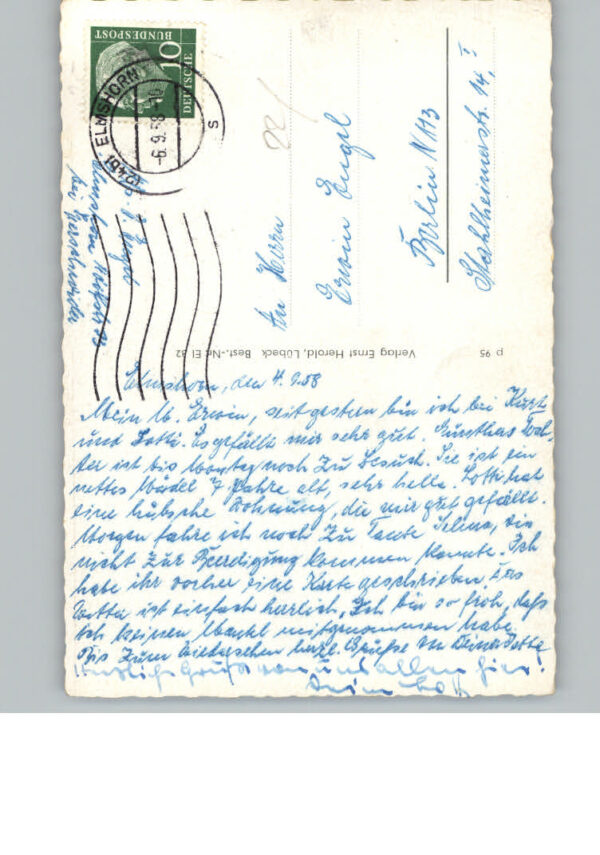 DEUTSCHE
BUNDESPOST
10
(24b) ELMSHORN
-6.9.58
s
An Herrn
Erwin Engel
Berlin N 113
Stahlheimerstr. 14, I
Engel
Elmshorn
bei
p 95 Verlag Ernst Herold, Lübeck Best.-Nr. El 32
Elmshorn, den 4.9.58
Mein lb. Erwin, seit gestern bin ich bei Kurt
und Lotti. Es gefällt mir sehr gut. Günthers Toch-
ter ist bis Montag noch zu Besuch. Sie ist ein
nettes Mädel 7 Jahre alt, sehr helle. Lotti hat
eine hübsche Wohnung, die mir gut gefällt.
Morgen fahre ich noch zu Tante Selma, die
nicht zur Beerdigung kommen konnte. Ich
habe ihr vorher eine Karte geschrieben. Das
Wetter ist einfach herrlich, Ich bin so froh, daß
ich keinen Mantel mitgenommen habe.
Bis zum Wiedersehen herzl. Grüße Deine
von und allen hier